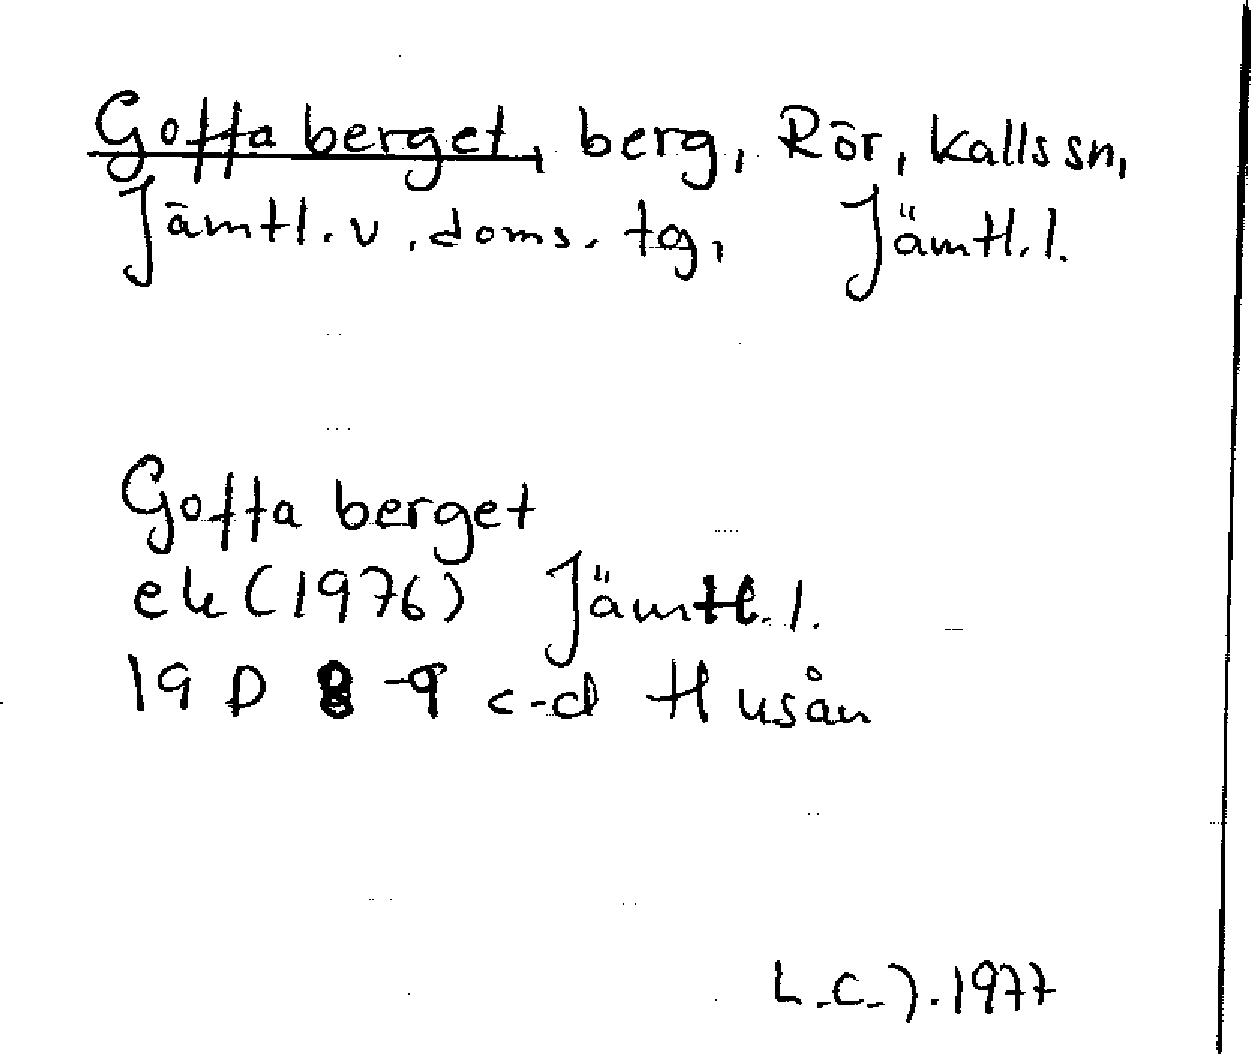 Gottaberget, berg, Rör, Kalls sn,
Jämtl. v. doms. tg, Jämtl. l.
Gottaberget
ek (1976) Jämtl. l.
19 D 8-9 c-d Husån
L.C.J. 1977